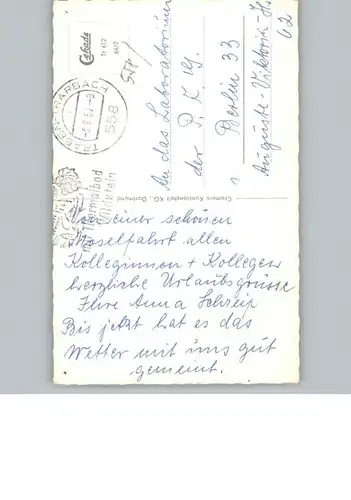 Cekade
Tr 632
6412
554/
TRABEN-TRARBACH
-2.9.61.-9
558
mit Thermalbad
Wildstein
Cramers Kunstanstalt KG., Dortmund
An das Laboratorium
der
1 Berlin 33
Auguste-Viktoria-
62
Von einer schönen
Moselfahrt allen
Kolleginnen + Kollegen
herzliche Urlaubsgrüsse
Ihre Anna Schreip
Bis jetzt hat es das
Wetter mit uns gut
gemeint.